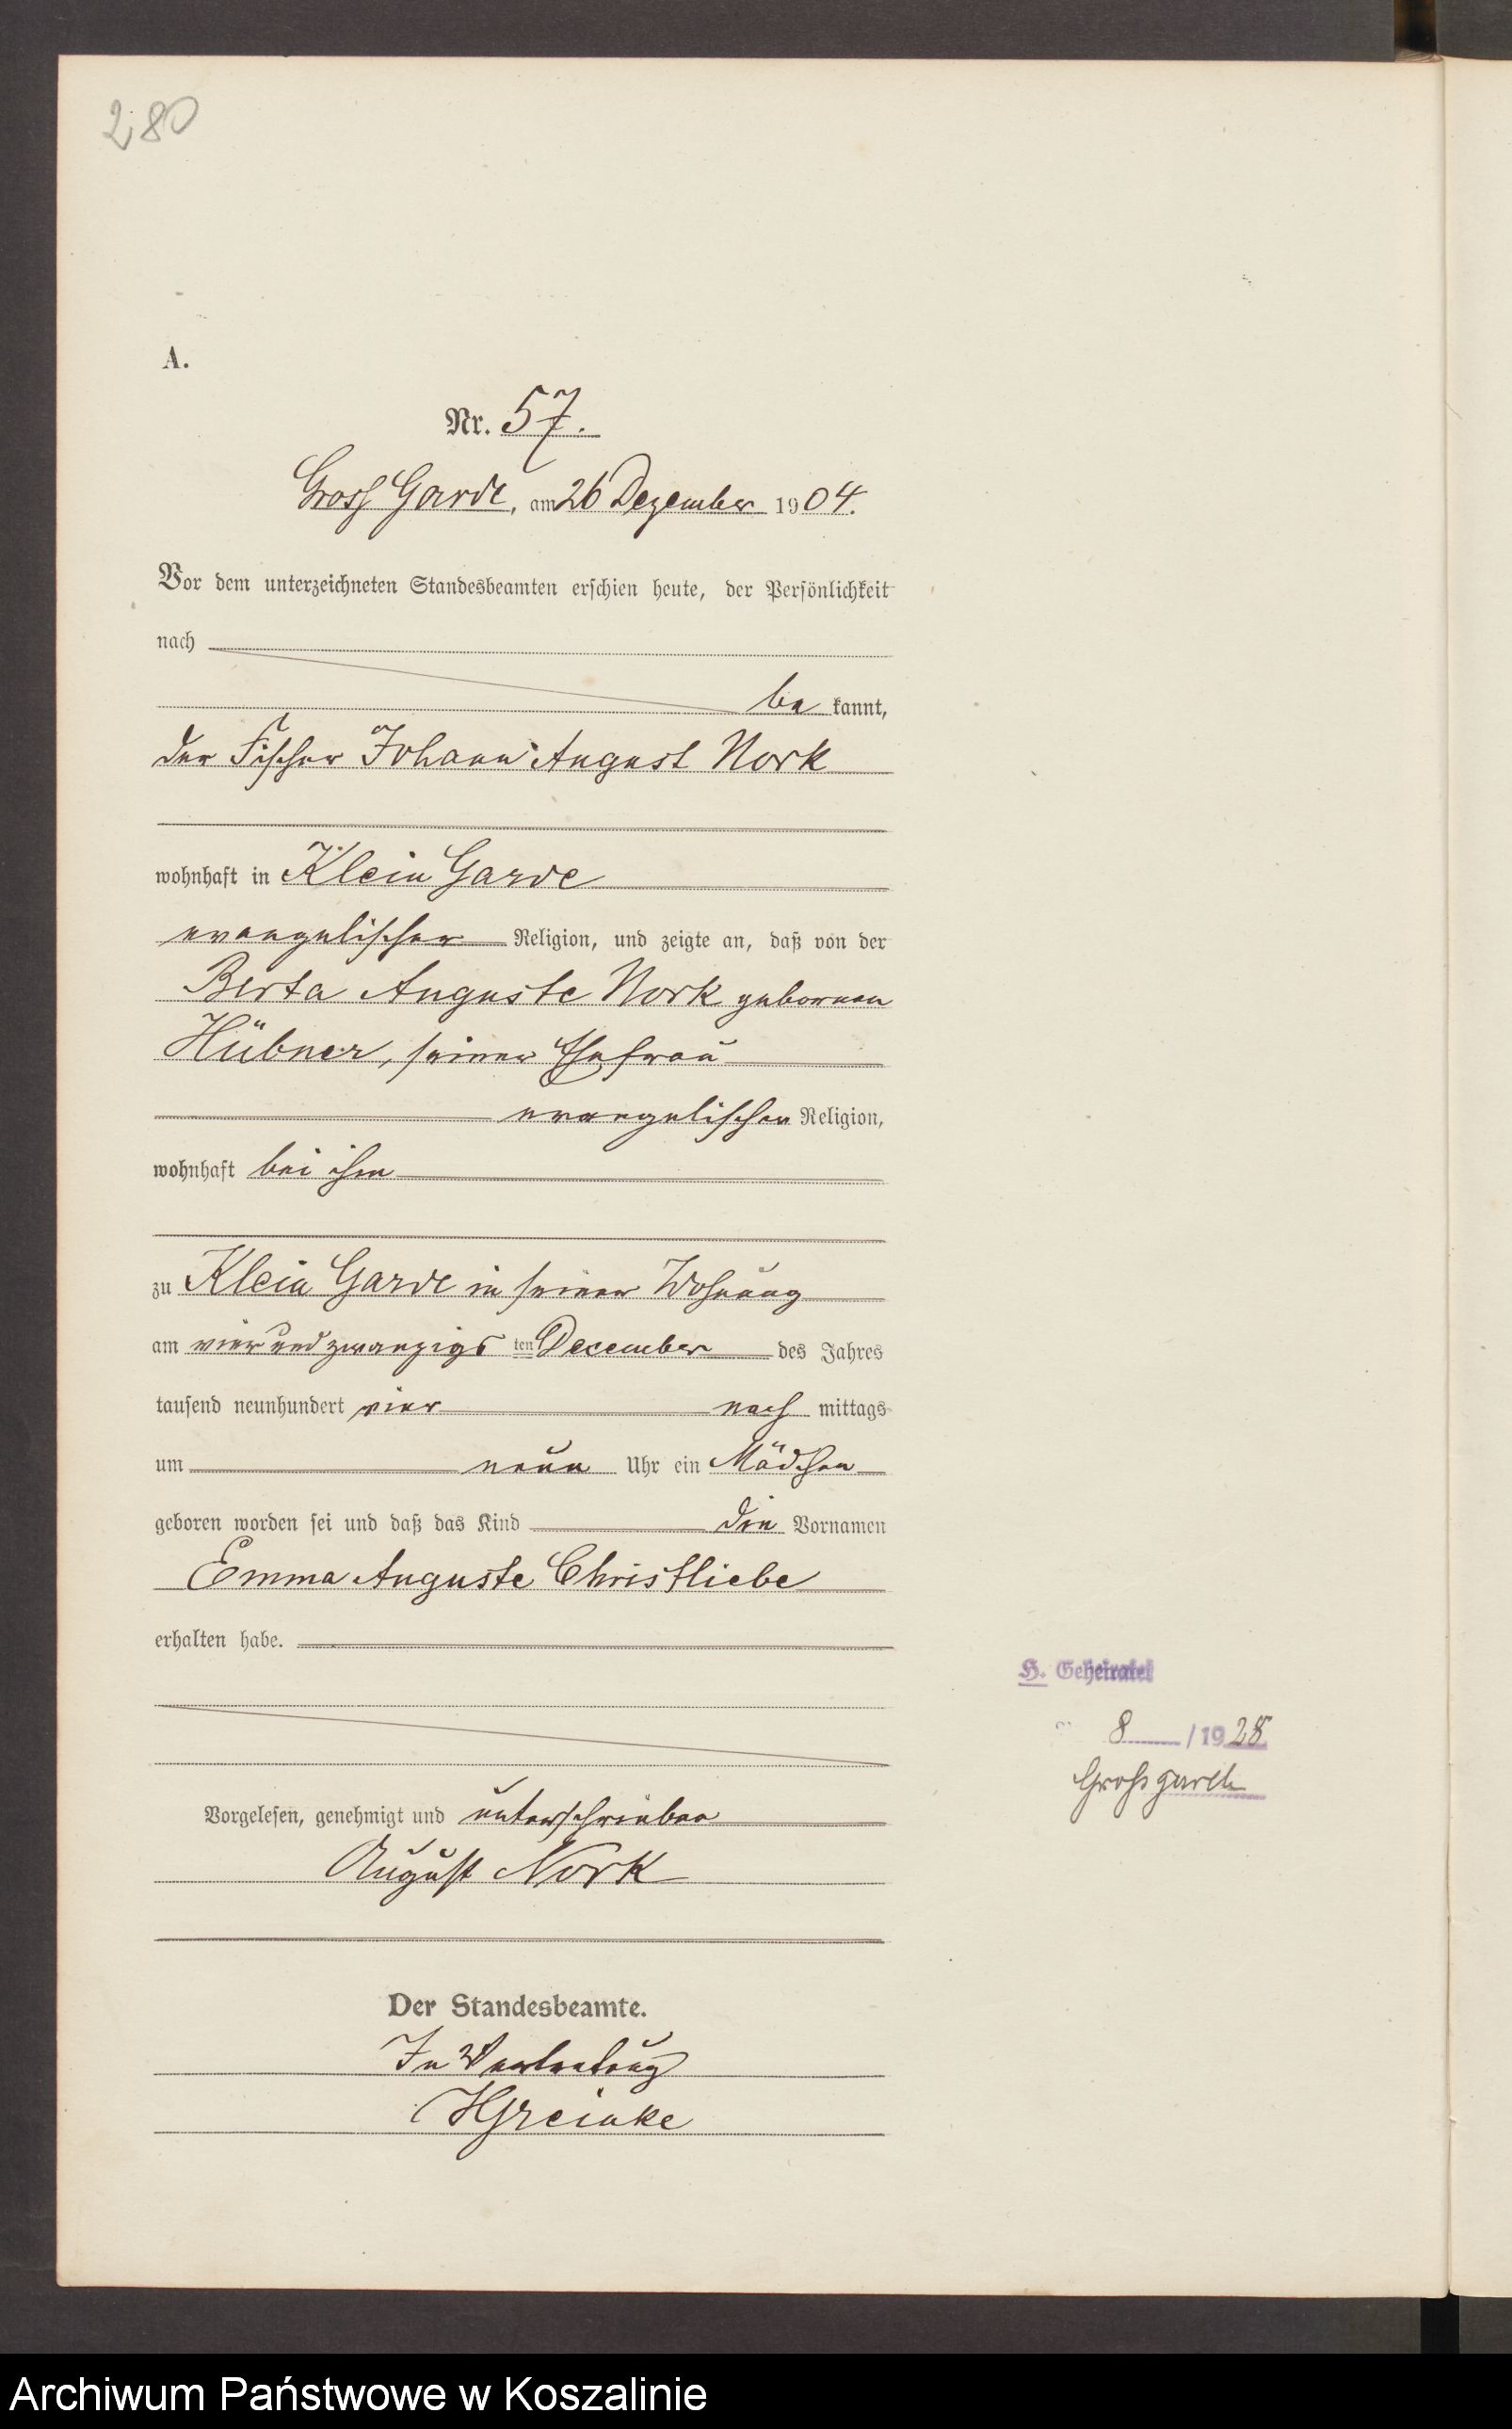 280
A.
Nr. 57.
Gross Garde, am 26 Dezember 1904.
Vor dem unterzeichneten Standesbeamten erschien heute, der Persönlichkeit
nach
be kannt,
der Fischer Johann August Nork
wohnhaft in Klein Garde
evangelischer Religion, und zeigte an, daß von der
Berta Auguste Nork geborenen
Hübner, seiner Ehefrau
evangelischer Religion,
wohnhaft bei ihm
zu Klein Garde in seiner Wohnung
am vier und zwanzigsten December des Jahres
tausend neunhundert vier nach mittags
um neun Uhr ein Mädchen
geboren worden sei und daß das Kind die Vornamen
Emma Auguste Christliebe
erhalten habe.
H. Geheiratet
8 /1928
Grossgarde
Vorgelesen, genehmigt und unterschrieben
August Nork
Der Standesbeamte.
In Vertretung
Greinke
Archiwum Państwowe w Koszalinie